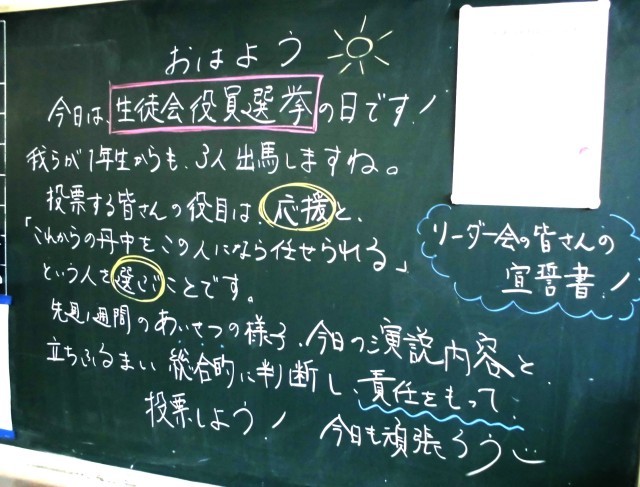 おはよう
今日は、生徒会役員選挙の日です!
我らが1年生からも、3人出馬しますね。
投票する皆さんの役目は、応援と、
「これからの丹中をこの人になら任せられる」
という人を選ぶことです。
先週1週間のあいさつの様子、今日の演説内容と
立ちふるまい 総合的に判断し、責任をもって
投票しよう! 今日も頑張ろう
リーダー会の皆さんの
宣誓書!